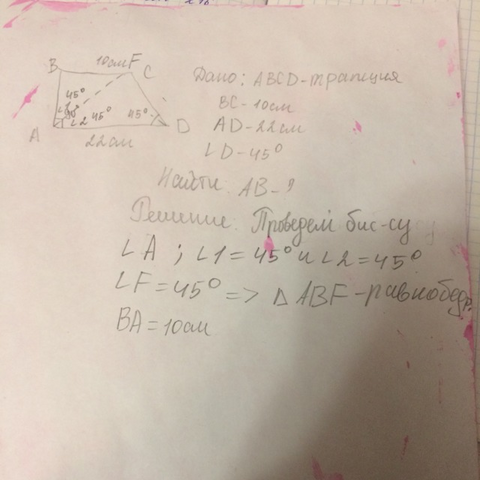 B 10см F C
45° 1
A 2 45° 45° D
22см
Дано: ABCD-трапеция
BC-10см
AD-22см
∠D-45°
Найти: AB-?
Решение: Проведем бис-су
∠A ; ∠1=45° и ∠2=45°
∠F=45° => △ABF-равнобедр.
BA=10см